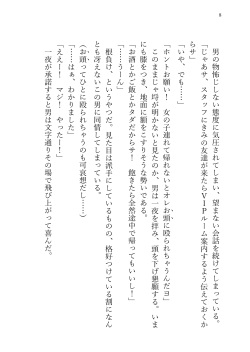 8
男の物怖じしない態度に気圧されてしまい、望まない会話を続けてしまっている。
「じゃあサ、スタッフにきみの友達が来たらVIPルーム案内するよう伝えておくか
らサ。でも……」
「いや、でも……」
「ホントお願い！　女の子連れて帰れないとオレお頭に殴られちゃうんだヨ」
このままじゃ埒が明かないと見たのか、男は一夜を拝み、頭を下げ懇願する。いま
にも膝をつき、地面に額をこすりそうな勢いである。
「お酒とかご飯とかタダだからサ！　飽きたら全然途中で帰ってもいいし！」
「……うーん」
根負け、というやつだ。見た目は派手にしているものの、格好つけている割になん
とも冴えないこの男に同情してしまっている。
（お頭ってひとに殴られちゃうのも可哀想だし……）
「……はぁ、わかりました」
「ええ！！　マジ！　やったー！」
一夜が承諾すると男は文字通りその場で飛び上がって喜んだ。